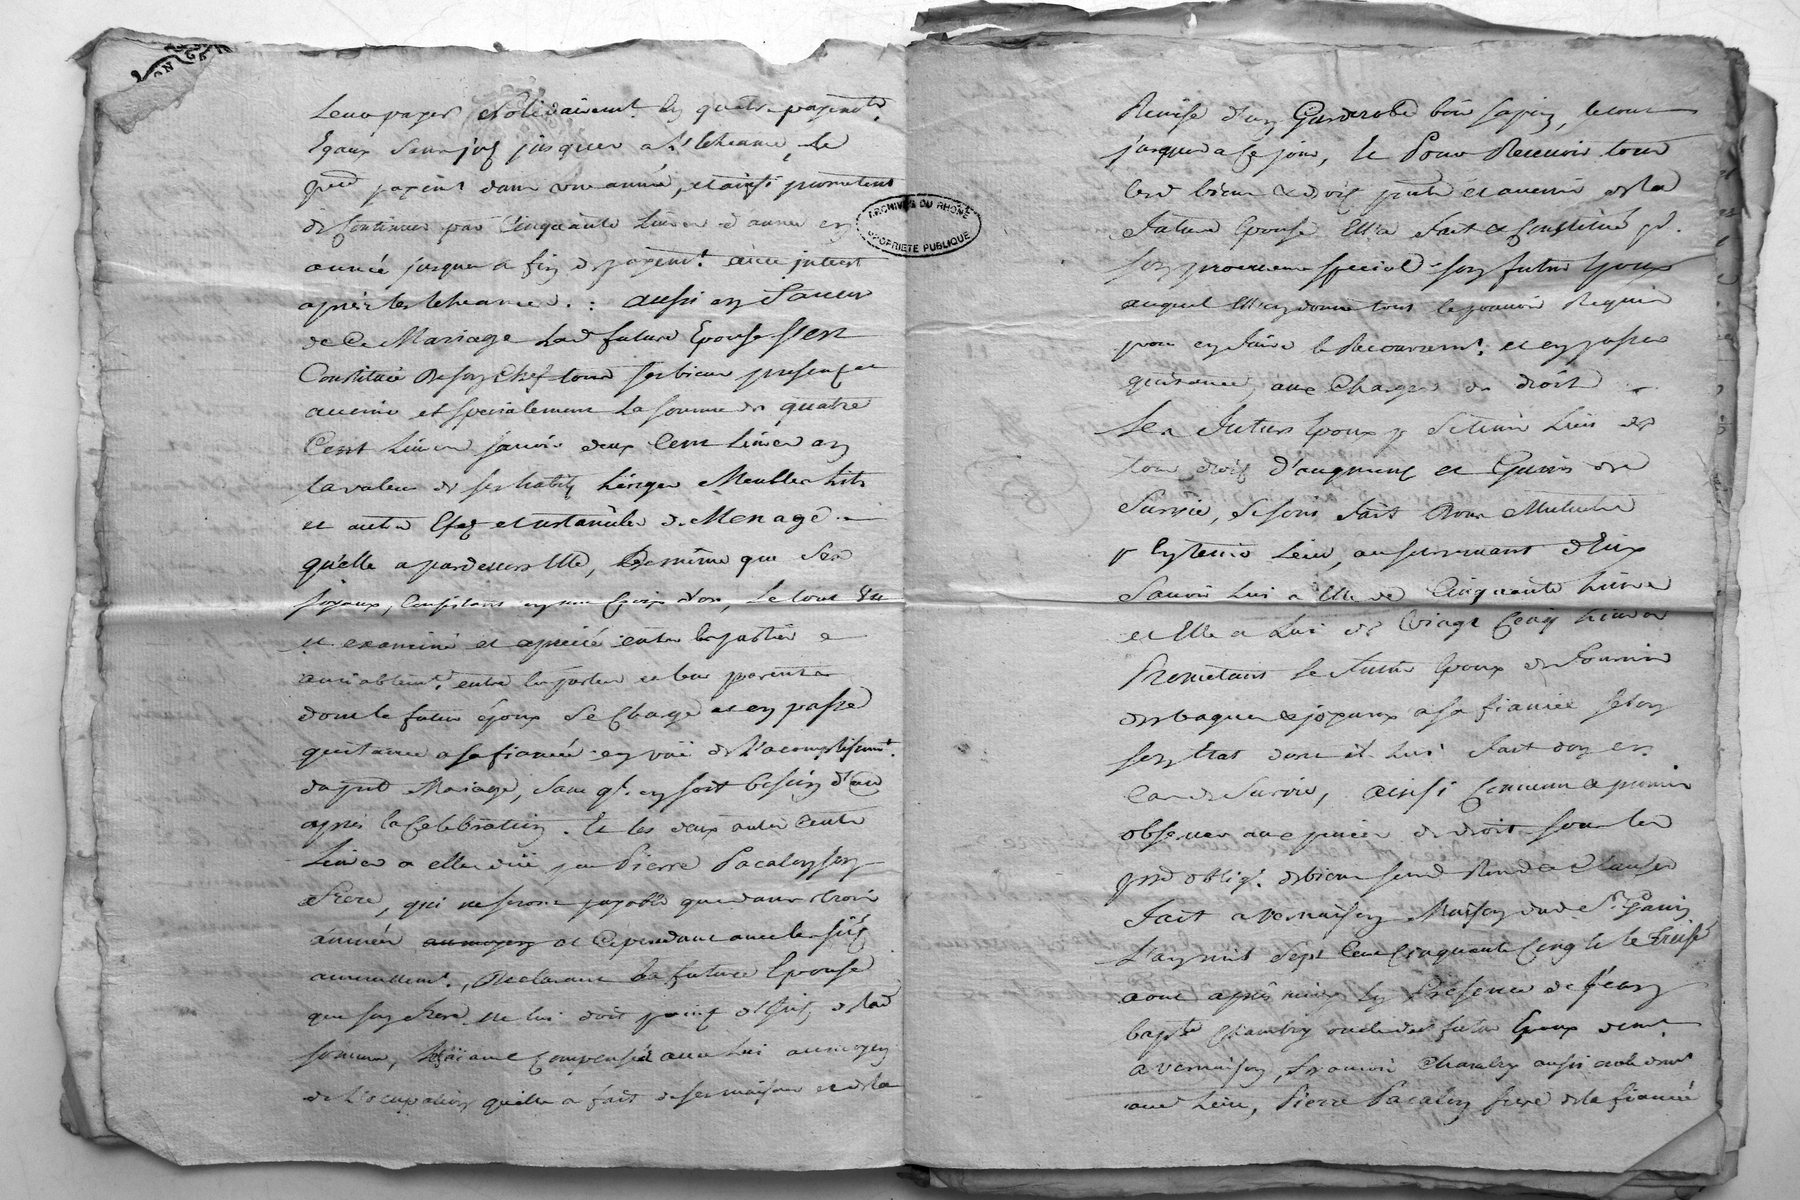 Leur payer solidairemt. en quatre payemts.
Egaux sans jnt jusques a l'Echeance, le
per payemt dans une année, et ainsi promettent
de Continuer par Cinquante Livres d'année en
année jusques a fin de payemt. avec jnterest
après les Echeances. : aussi en faveur
de Ce Mariage lad future Epouse s'est
Constituée De son Chef tous ses biens presens et
avenir et specialement la somme de quatre
Cent Livres savoir deux Cent Livres en
la valeur de ses habits Linges Meubles Lits
et autres Efets et ustanciles de Menage
quelle a pardevers Elle, De même que ses
joyaux, Consistans en une Croix d'or, le tout vu
et examiné et aprecié entre les parties
amiablemt. entre les parties et leurs parents
dont le futur époux se Charge et en passe
quitance a sa fiancée en vüe de l'acomplissemt.
du prest Mariage, sans ql. en soit besoin d'autre
après la Celebration. Et les deux autres Cents
Livres a elle düe par Pierre Pacalon son
frere, qui ne seront payable que dans trois
années au moyen et Cependant avec les jnts
annuellemt., Declarant la future Epouse
que son frere ne lui doit point d'jnts de lad
somme, ayant Compensé avec lui au moyen
de l'ocupation quelle a fait de ses maisons et de la
Remise d'un Garderobe bois sapin, le tout
jusques a Ce jour, Et Pour Recevoir tous
lesd biens & droits pnts et avenir de la
future Epouse Elle a fait & Constitué pr.
son procureur special son futur Epoux
auquel Elle en donne tout le pouvoir Requis
pour en faire le Recouvremt. et en passer
quitances aux Charges de droit
Les futurs Epoux
tous droits d'augment et Gains de
Survie, Se sont fait Dons Mutuels
Lieu, au survivant d'Eux
Savoir Lui a Elle de Cinquante Livres
et Elle a Lui de Vingt Cinq Livres
Promettant le futur Epoux de fournir
des bagues & joyaux a sa fiancée selon
son Etat dont il lui fait don en
Cas de Survie, ainsi Convenu & promis
observer aux peines de droit sous les
prd obligs. de biens Renon & Clauses
fait a Vernaison Maison dud Sr.
L'an mil sept Cent Cinquante Cinq et le treise
aout après midy En Presence de Jean
baptte Chambry oncle dud futur Epoux demt.
a Vernaison, François Chambry aussi oncle demt
aud Lieu, Pierre Pacalon frere de la fiancée
ARCHIVES DU RHÔNE
PROPRIÉTÉ PUBLIQUE